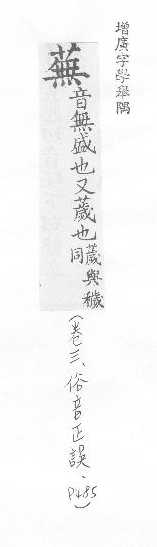 增廣字學舉隅
蕪
音無盛也又薉也薉與穢同
(卷三、俗音正誤、P485)